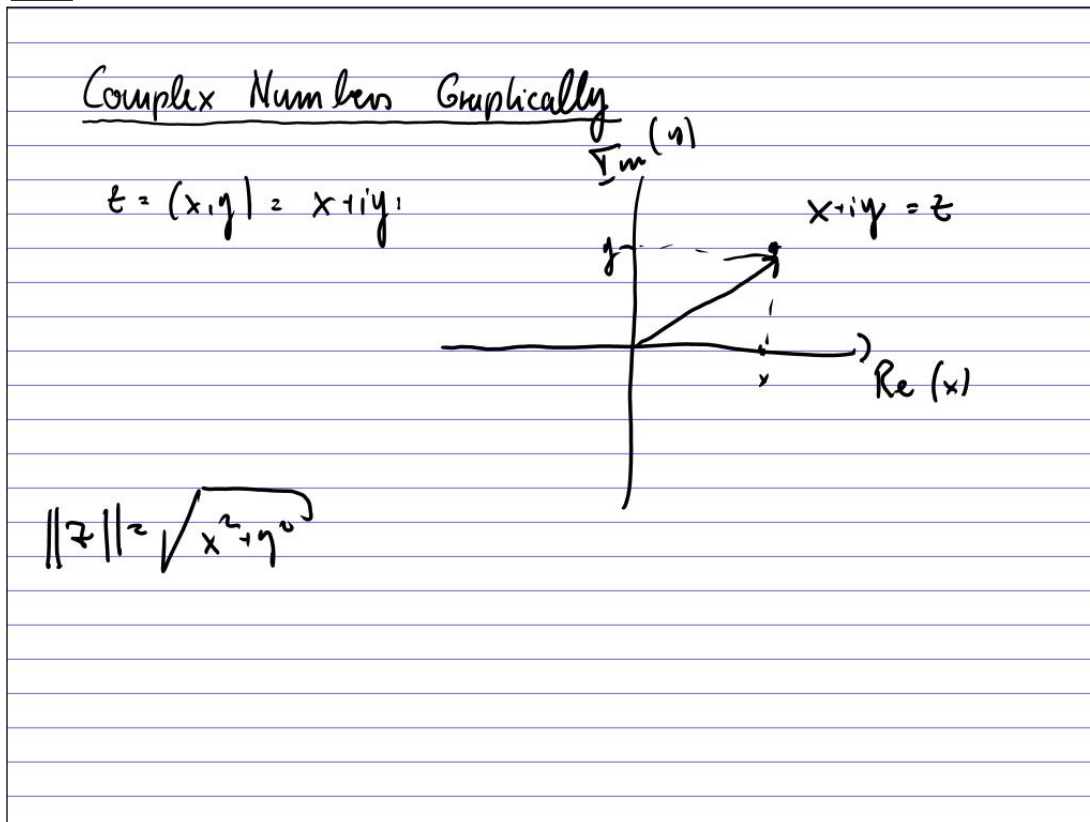 Complex Numbers Graphically
Im (y)
z = (x,y) = x+iy
x+iy = z
y
x
Re (x)
||z|| = √x²+y²